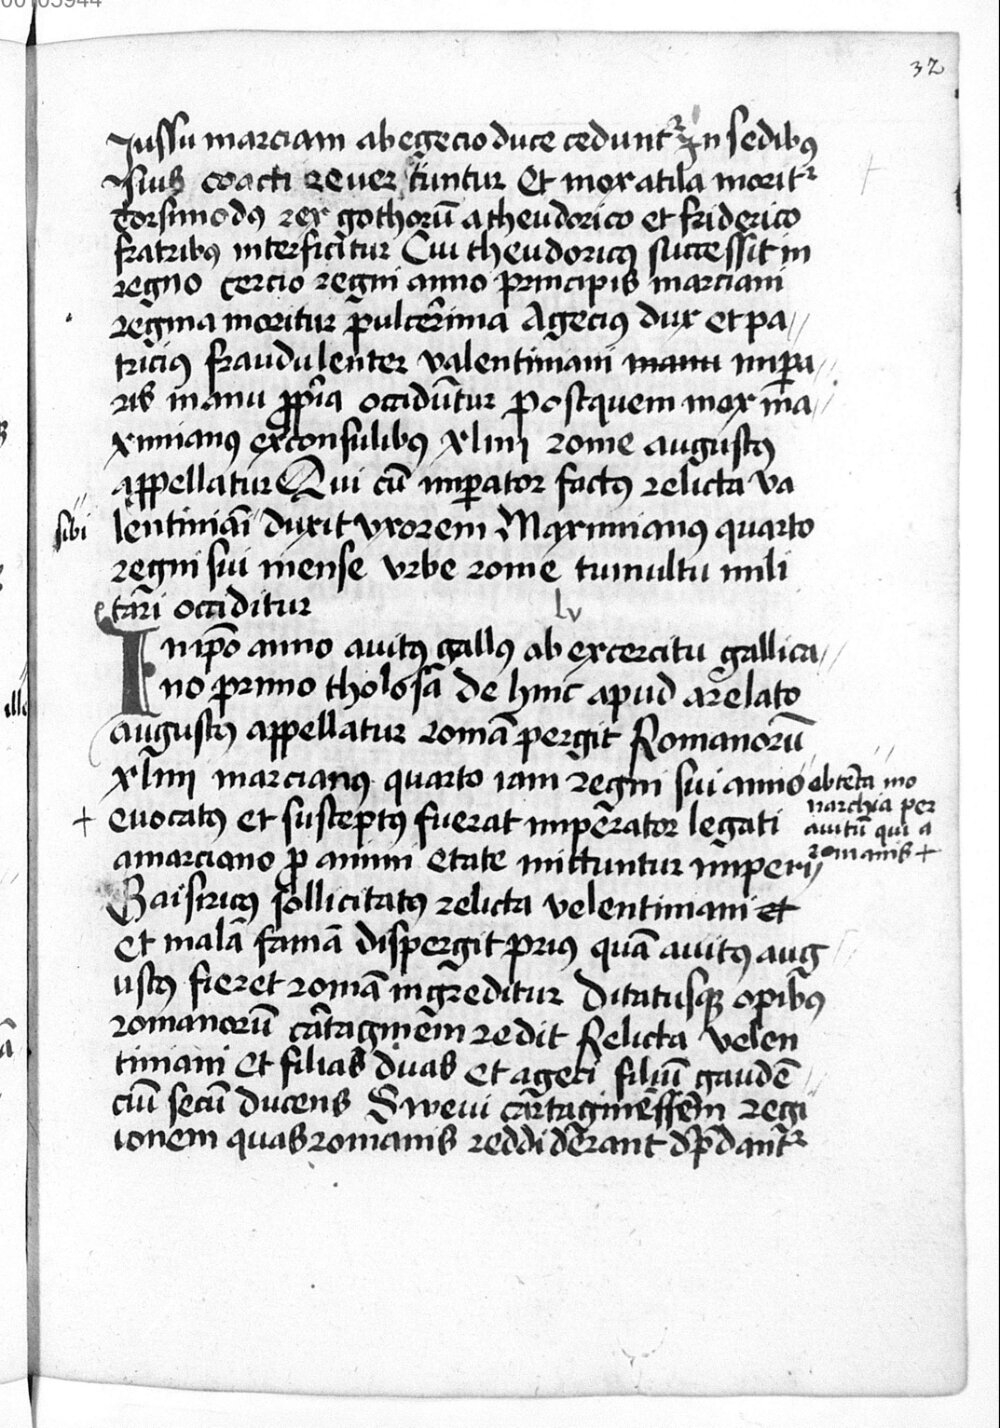 00105944
32
Jussu marciam ab egecio duce cedunt͛ In sedibꝰ
suis coacti rever tuntur Et mox atila morit͛
Torsimodꝰ rex gothorū a theudorico et friderico
fratribꝰ interficitur Cui theudoricꝰ successit in
regno tercio regni anno principis marciani
regina moritur pulcerrima Agecius dux et pa//
tricius fraudulenter valentiniani manu impa//
ris manu ꝓpria occidūtur Postquem mox ma//
ximianꝰ exconsulibꝰ xliiii rome augustꝰ
appellatur Qui cū imperator factꝰ relicta va
sibi
lentiniāi duxit uxorem Maximianus quarto
regni sui mense urbe rome tumultu mili
tari occiditur
lv
In ipō anno avitꝰ gallꝰ ab excercitu gallica//
no primo tholosā de hinc apud arelato
augustꝰ appellatur romā pergit Romanorū
xliiii marcianus quarto iam regni sui anno
obtēta mo
narchia per
avitū qui a
romanis +
+ evocatꝰ et susceptꝰ fuerat imperator legati
a marciano p̄ animi etate mittuntur imperij
Gaisiricꝰ sollicitatꝰ relicta velentiniani et
et malā famā dispergit prius quā avitꝰ aug
ustꝰ fieret romā ingreditur ditatusque opibꝰ
romanorū cartaginēm redit Relicta velen
tiniani et filias duas et ageci filiū gaudē//
ciū secū ducens Swevi cartaginēssēm regi
ionem quas romanis reddiderant dp̄dant͛